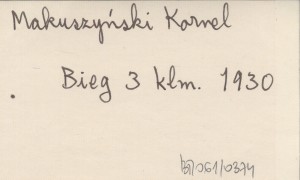 Makuszyński Kornel
Bieg 3 kłm. 1930
061/0374